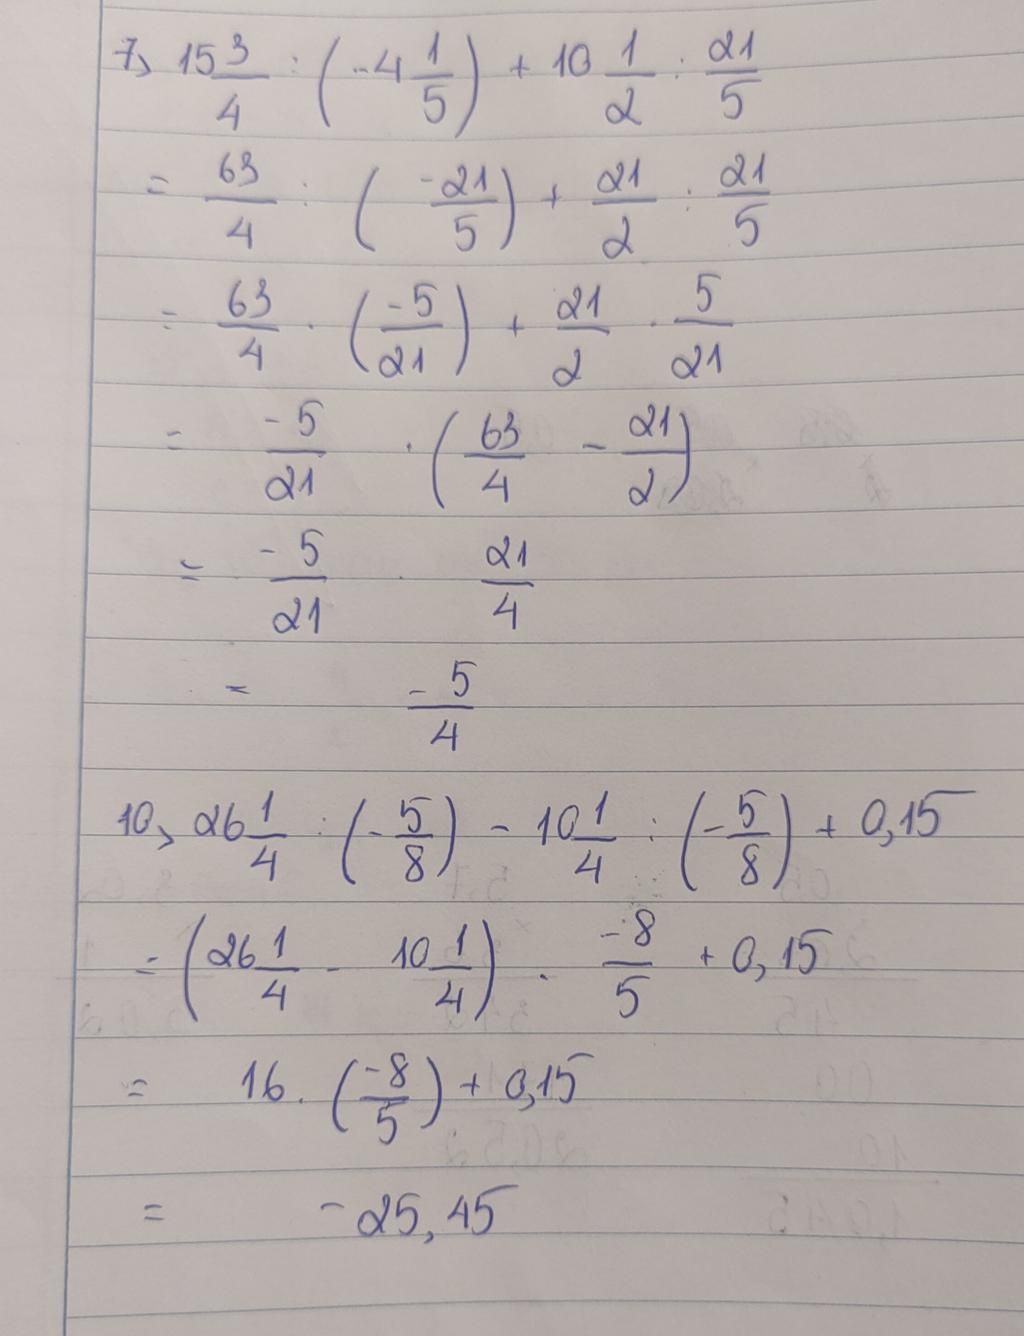 7, 15 3/4 : (-4 1/5) + 10 1/2 : 21/5
= 63/4 : (-21/5) + 21/2 : 21/5
= 63/4 . (-5/21) + 21/2 . 5/21
= -5/21 . (63/4 - 21/2)
= -5/21 . 21/4
= -5/4
10, 26 1/4 : (-5/8) - 10 1/4 : (-5/8) + 0,15
= (26 1/4 - 10 1/4) . -8/5 + 0,15
= 16 . (-8/5) + 0,15
= -25,45